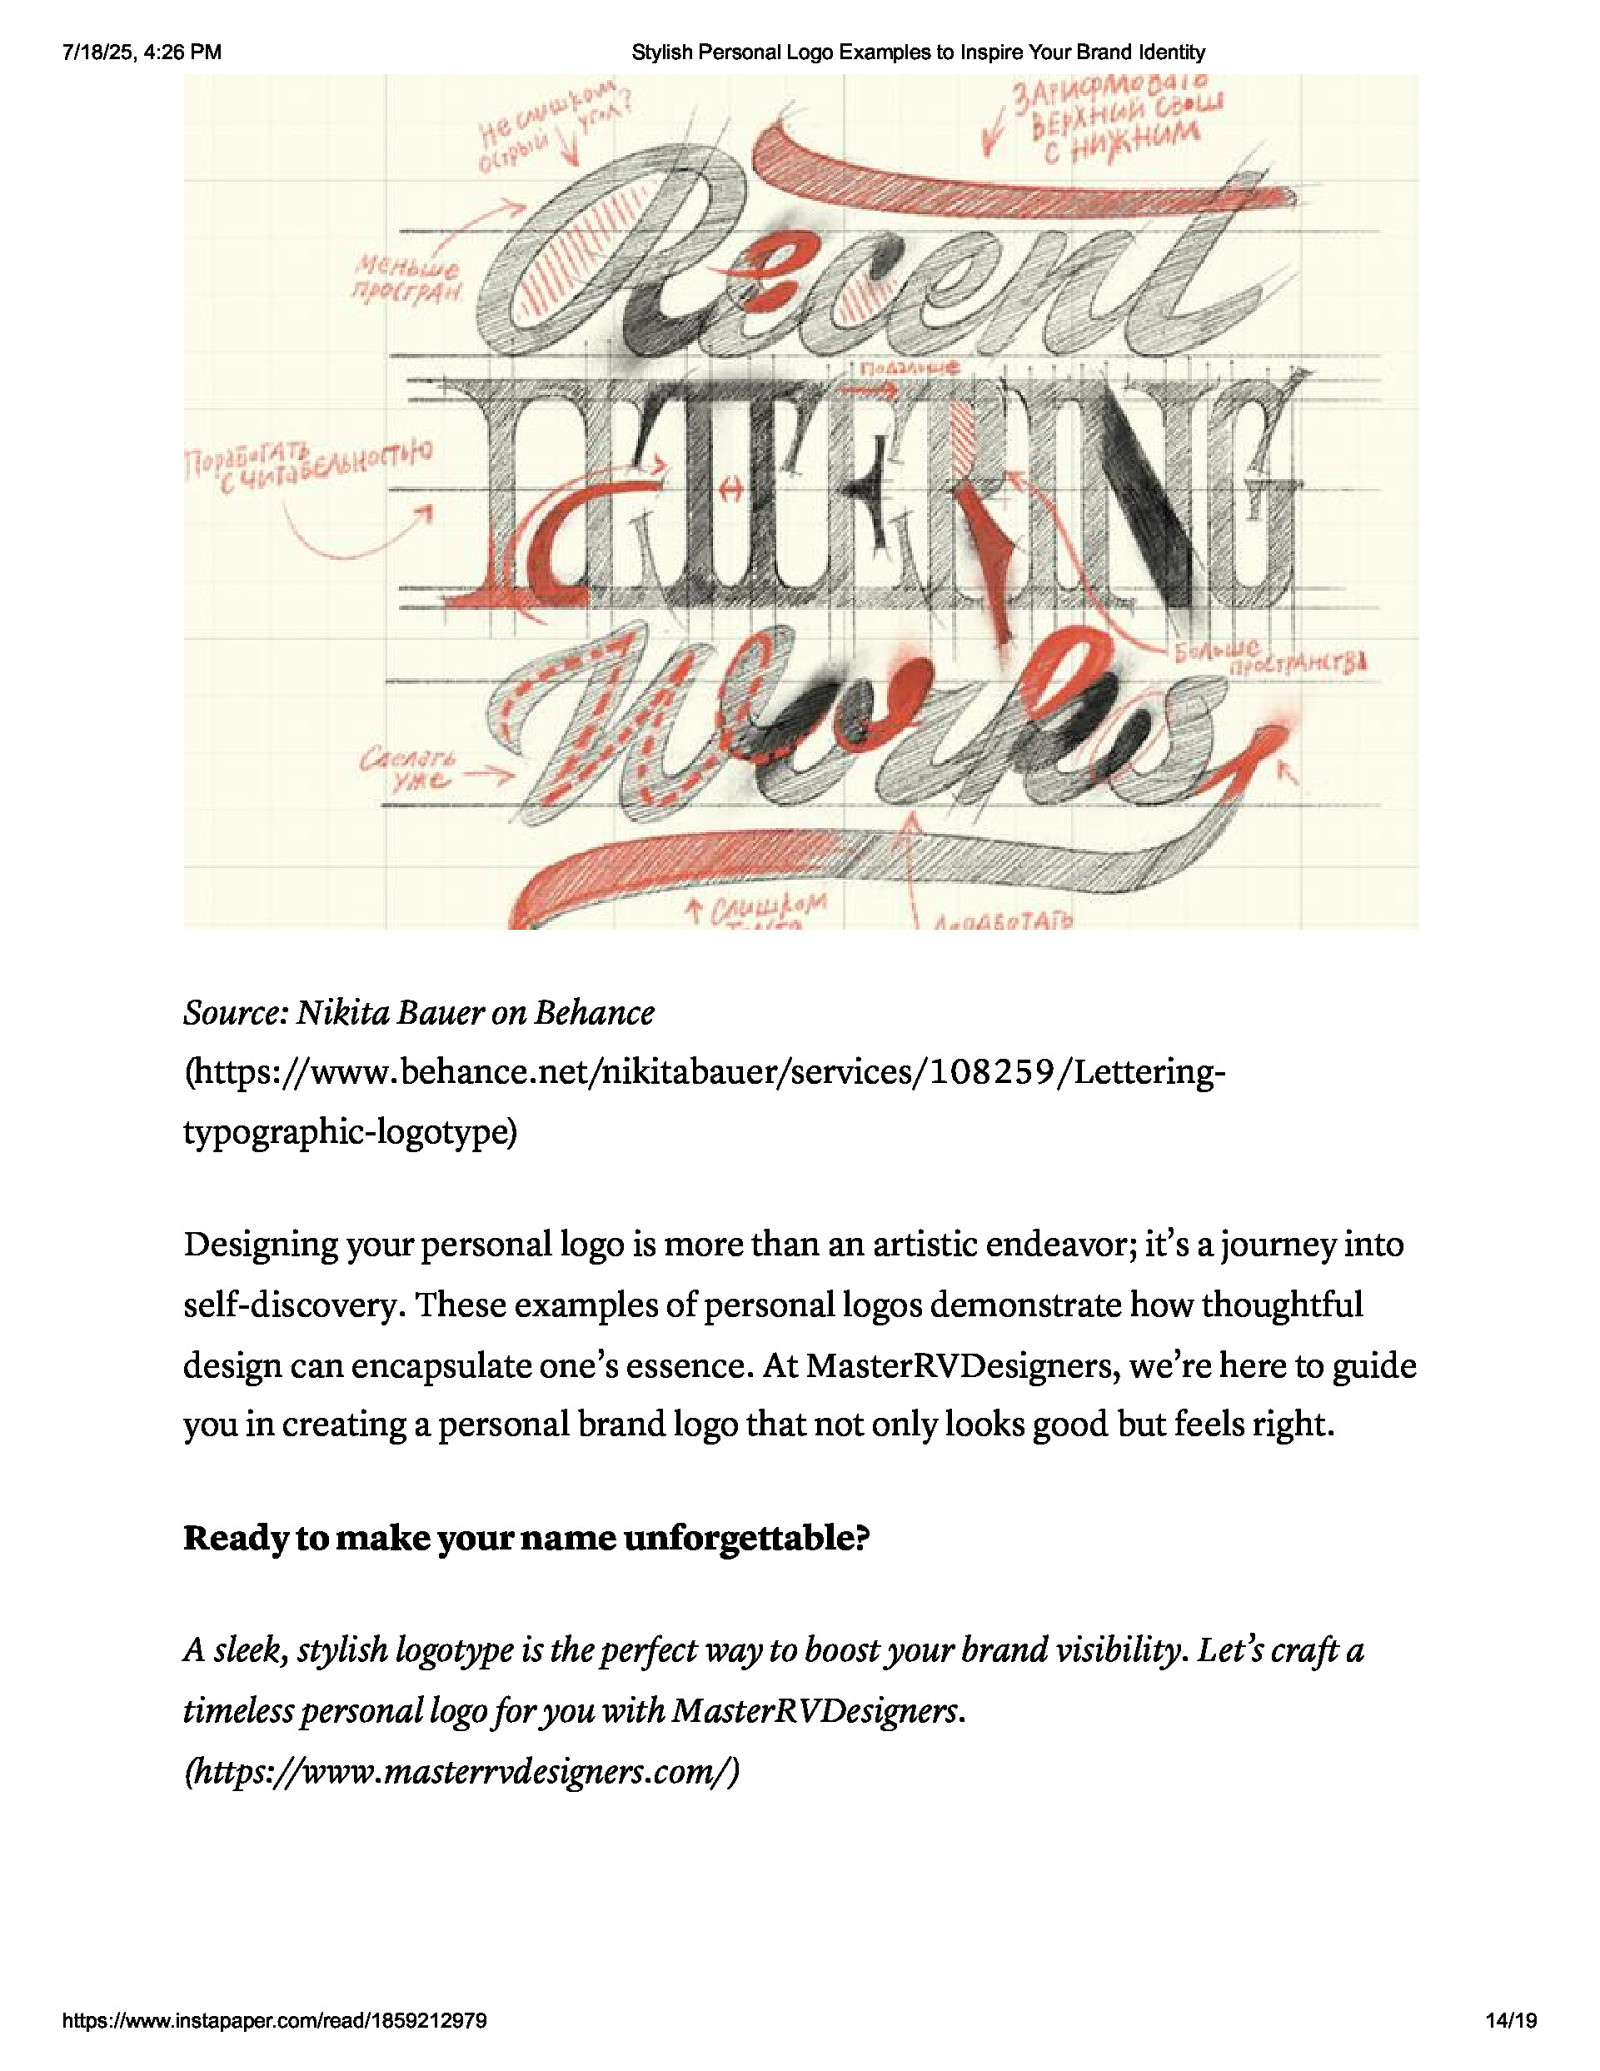 7/18/25, 4:26 PM
Stylish Personal Logo Examples to Inspire Your Brand Identity
Не слишком
острый угол?
Зарифмовать
верхний свош
с нижним
Recent
Меньше
простран
Подальше
LETTERING
Поработать
с читабельностью
Works
Больше
пространства
Сделать
уже
Слишком
Доработать
Source: Nikita Bauer on Behance
(https://www.behance.net/nikitabauer/services/108259/Lettering-
typographic-logotype)
Designing your personal logo is more than an artistic endeavor; it’s a journey into
self-discovery. These examples of personal logos demonstrate how thoughtful
design can encapsulate one’s essence. At MasterRVDesigners, we’re here to guide
you in creating a personal brand logo that not only looks good but feels right.
Ready to make your name unforgettable?
A sleek, stylish logotype is the perfect way to boost your brand visibility. Let’s craft a
timeless personal logo for you with MasterRVDesigners.
(https://www.masterrvdesigners.com/)
https://www.instapaper.com/read/1859212979
14/19